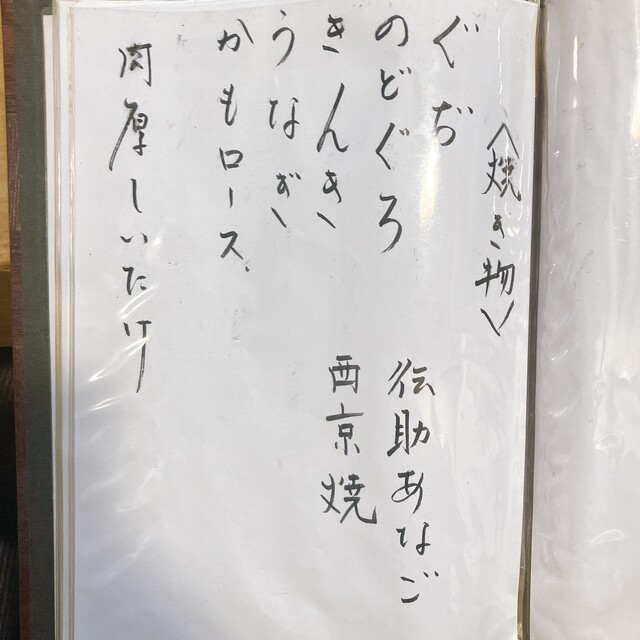 〈焼き物〉
ぐぢ
のどぐろ
きんき
うなぎ
かもロース
肉厚しいたけ
伝助あなご
西京焼